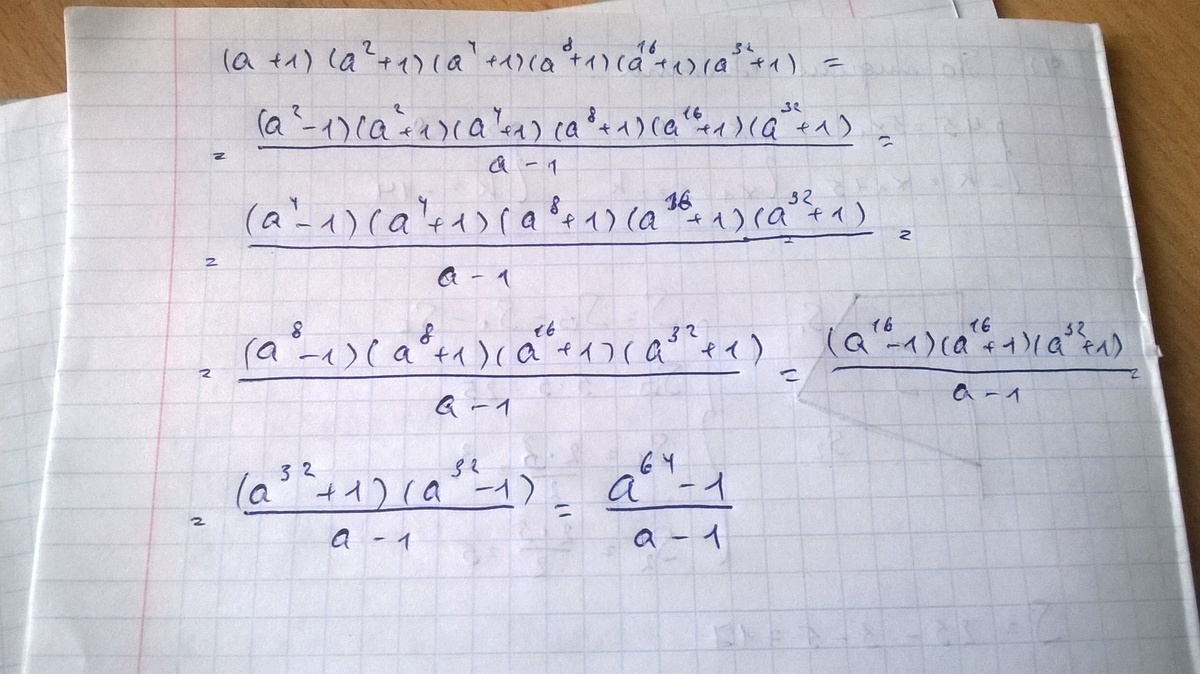 (a+1)(a²+1)(a⁴+1)(a⁸+1)(a¹⁶+1)(a³²+1) =
= (a²-1)(a²+1)(a⁴+1)(a⁸+1)(a¹⁶+1)(a³²+1) =
a-1
= (a⁴-1)(a⁴+1)(a⁸+1)(a¹⁶+1)(a³²+1) =
a-1
= (a⁸-1)(a⁸+1)(a¹⁶+1)(a³²+1) = (a¹⁶-1)(a¹⁶+1)(a³²+1) =
a-1 a-1
= (a³²+1)(a³²-1) = a⁶⁴-1
a-1 a-1